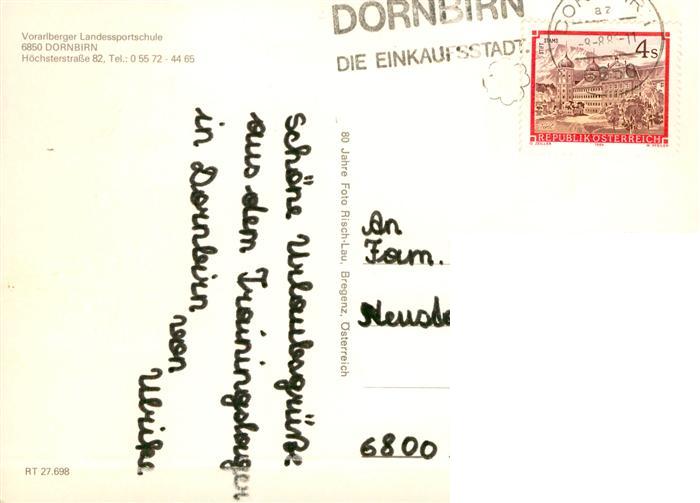 Vorarlberger Landessportschule
6850 DORNBIRN
Höchsterstraße 82, Tel.: 0 55 72 - 44 65
DORNBIRN
DIE EINKAUFSSTADT
STIFT STAMS
4s
REPUBLIK ÖSTERREICH
schöne Urlaubsgrüße
aus dem Trainingslager
in Dornbirn
von
Ulrike.
80 Jahre Foto Risch-Lau, Bregenz, Österreich
An
Fam.
6800
RT 27.698